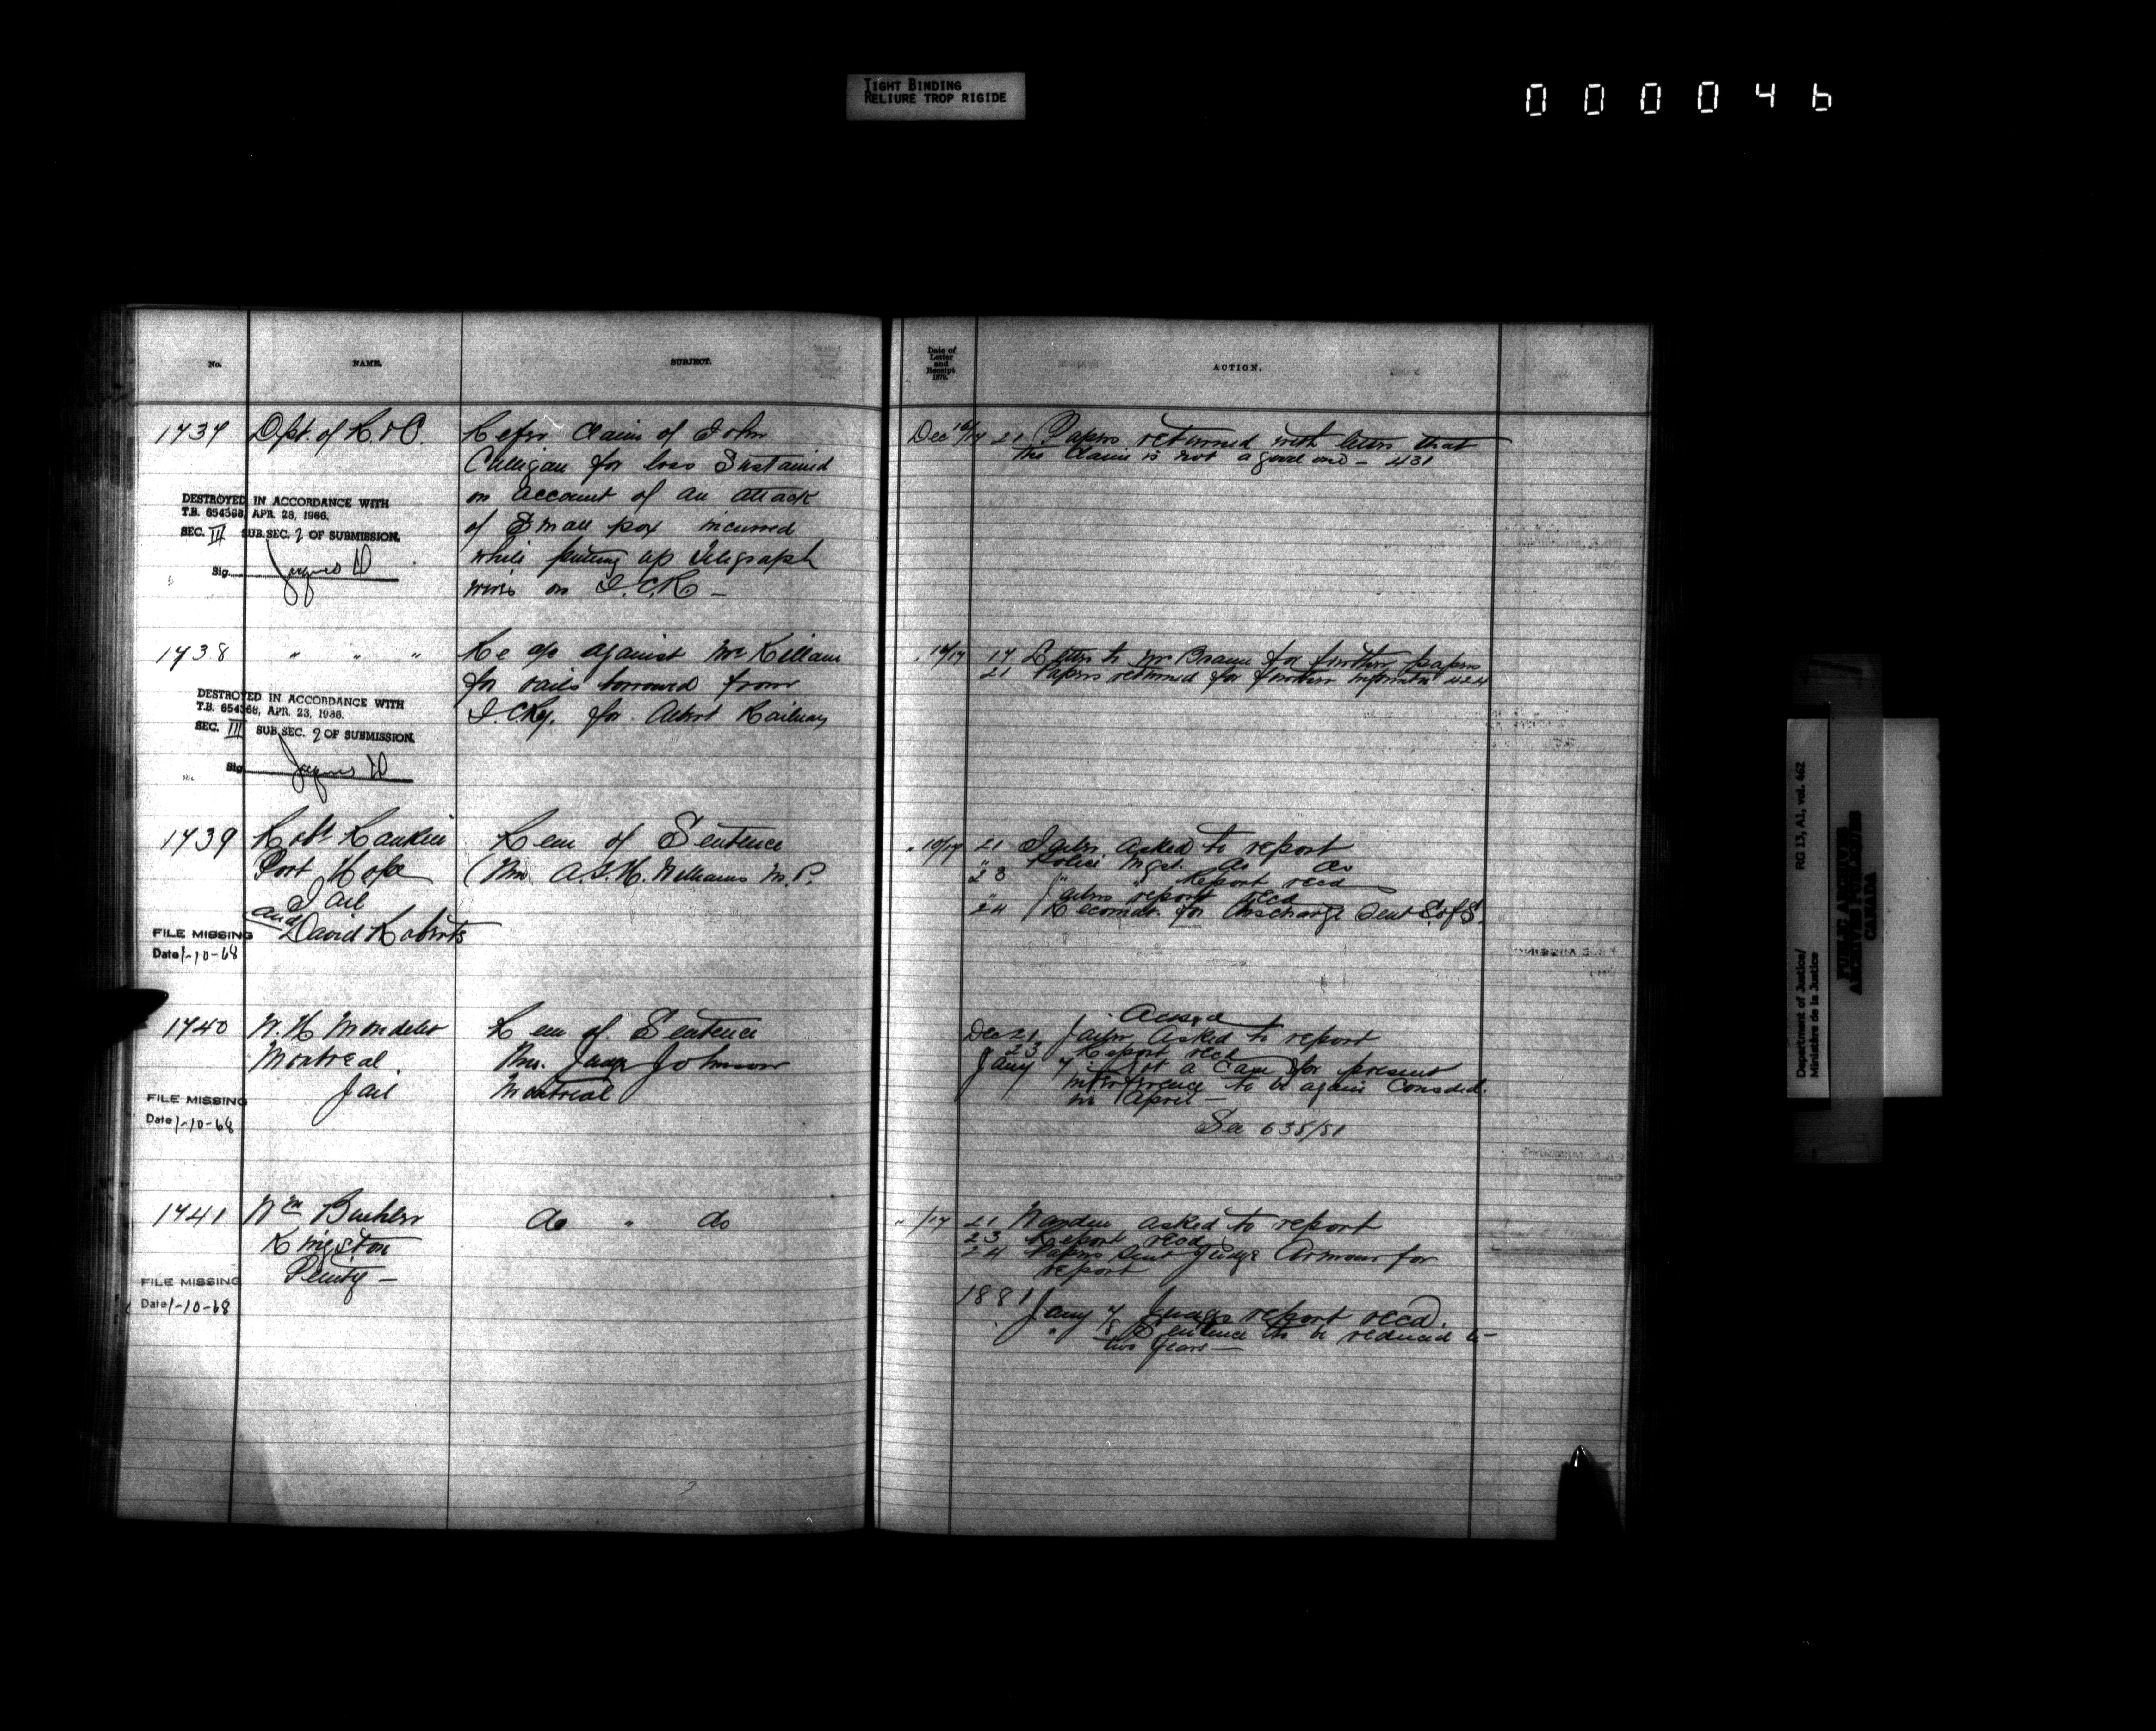 TIGHT BINDING
RELIURE TROP RIGIDE
000046
No.
NAME.
SUBJECT.
Date of
Letter
and
Receipt
1879.
ACTION.
1737 Dpt. of R. & C. Refer Claim of John
Culligan for loss Sustained
on account of an attack
of Small pox incurred
while putting up telegraph
wires on I.C.R –
DESTROYED IN ACCORDANCE WITH
T.B. 654368, APR. 28, 1966.
SEC. III SUB.SEC. 2 OF SUBMISSION.
Sig.
Dec 16/17 21 Papers returned with letter that
the Claim is not a good one – 431
1738 " " " Re a/c against Mc Killam
for rails borrowed from
I.C.Ry. for Albert Railway
DESTROYED IN ACCORDANCE WITH
T.B. 654368, APR. 23, 1966.
SEC. III SUB.SEC. 2 OF SUBMISSION.
Sig.
" 16/17 17 Letter to Mr Braun for further papers
21 Papers returned for further informatn 424
1739 Robt Rankin Rem of Sentence
Port Hope (Thro A.T.H. Williams M.P.
Jail
and David Roberts
FILE MISSING
Date 1-10-68
" 10/17 21 Jailer asked to report
" Police Mgst. do do
23 " " Report recd
" Jailers report recd
24 Recomdt. for discharge sent S. of S.
1740 W. H Mondelet Rem of. Sentence
Montreal Thro. Judge Johnson
Jail Montreal
FILE MISSING
Date 1-10-68
Ackged
Dec 21 Jailer asked to report
23 Report recd
Jany 7 Not a Case for present
interference to be again Consded.
in April –
See 635/81
1741 Wm Buehler do " do
Kingston
Penty –
FILE MISSING
Date 1-10-68
" /17 21 Warden asked to report
23 Report recd
24 Papers sent Judge Armour for
report
1881
Jany 7 Judges report recd.
" 8 Sentence to be reduced to
two years –
Department of Justice/ RG 13, A1, vol. 462
Ministère de la Justice
PUBLIC ARCHIVES
ARCHIVES PUBLIQUES
CANADA